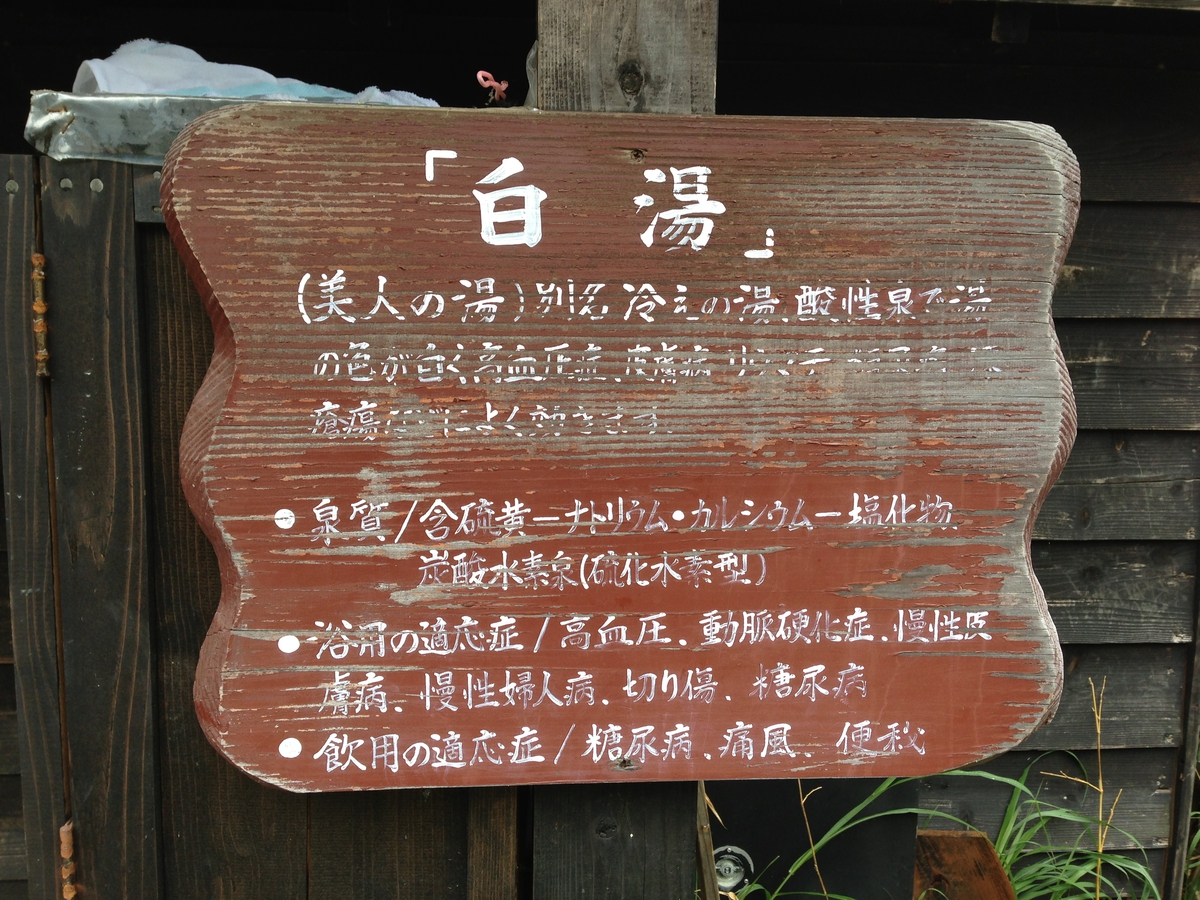 「白湯」
(美人の湯)別名 冷えの湯、酸性泉で湯
の色が白く高血圧症、皮膚病、リウマチ
瘡瘍などによく効きます。
●泉質/含硫黄ーナトリウム・カルシウムー塩化物
炭酸水素泉(硫化水素型)
●浴用の適応症/高血圧、動脈硬化症、慢性皮
膚病、慢性婦人病、切り傷、糖尿病
●飲用の適応症/糖尿病、痛風、便秘